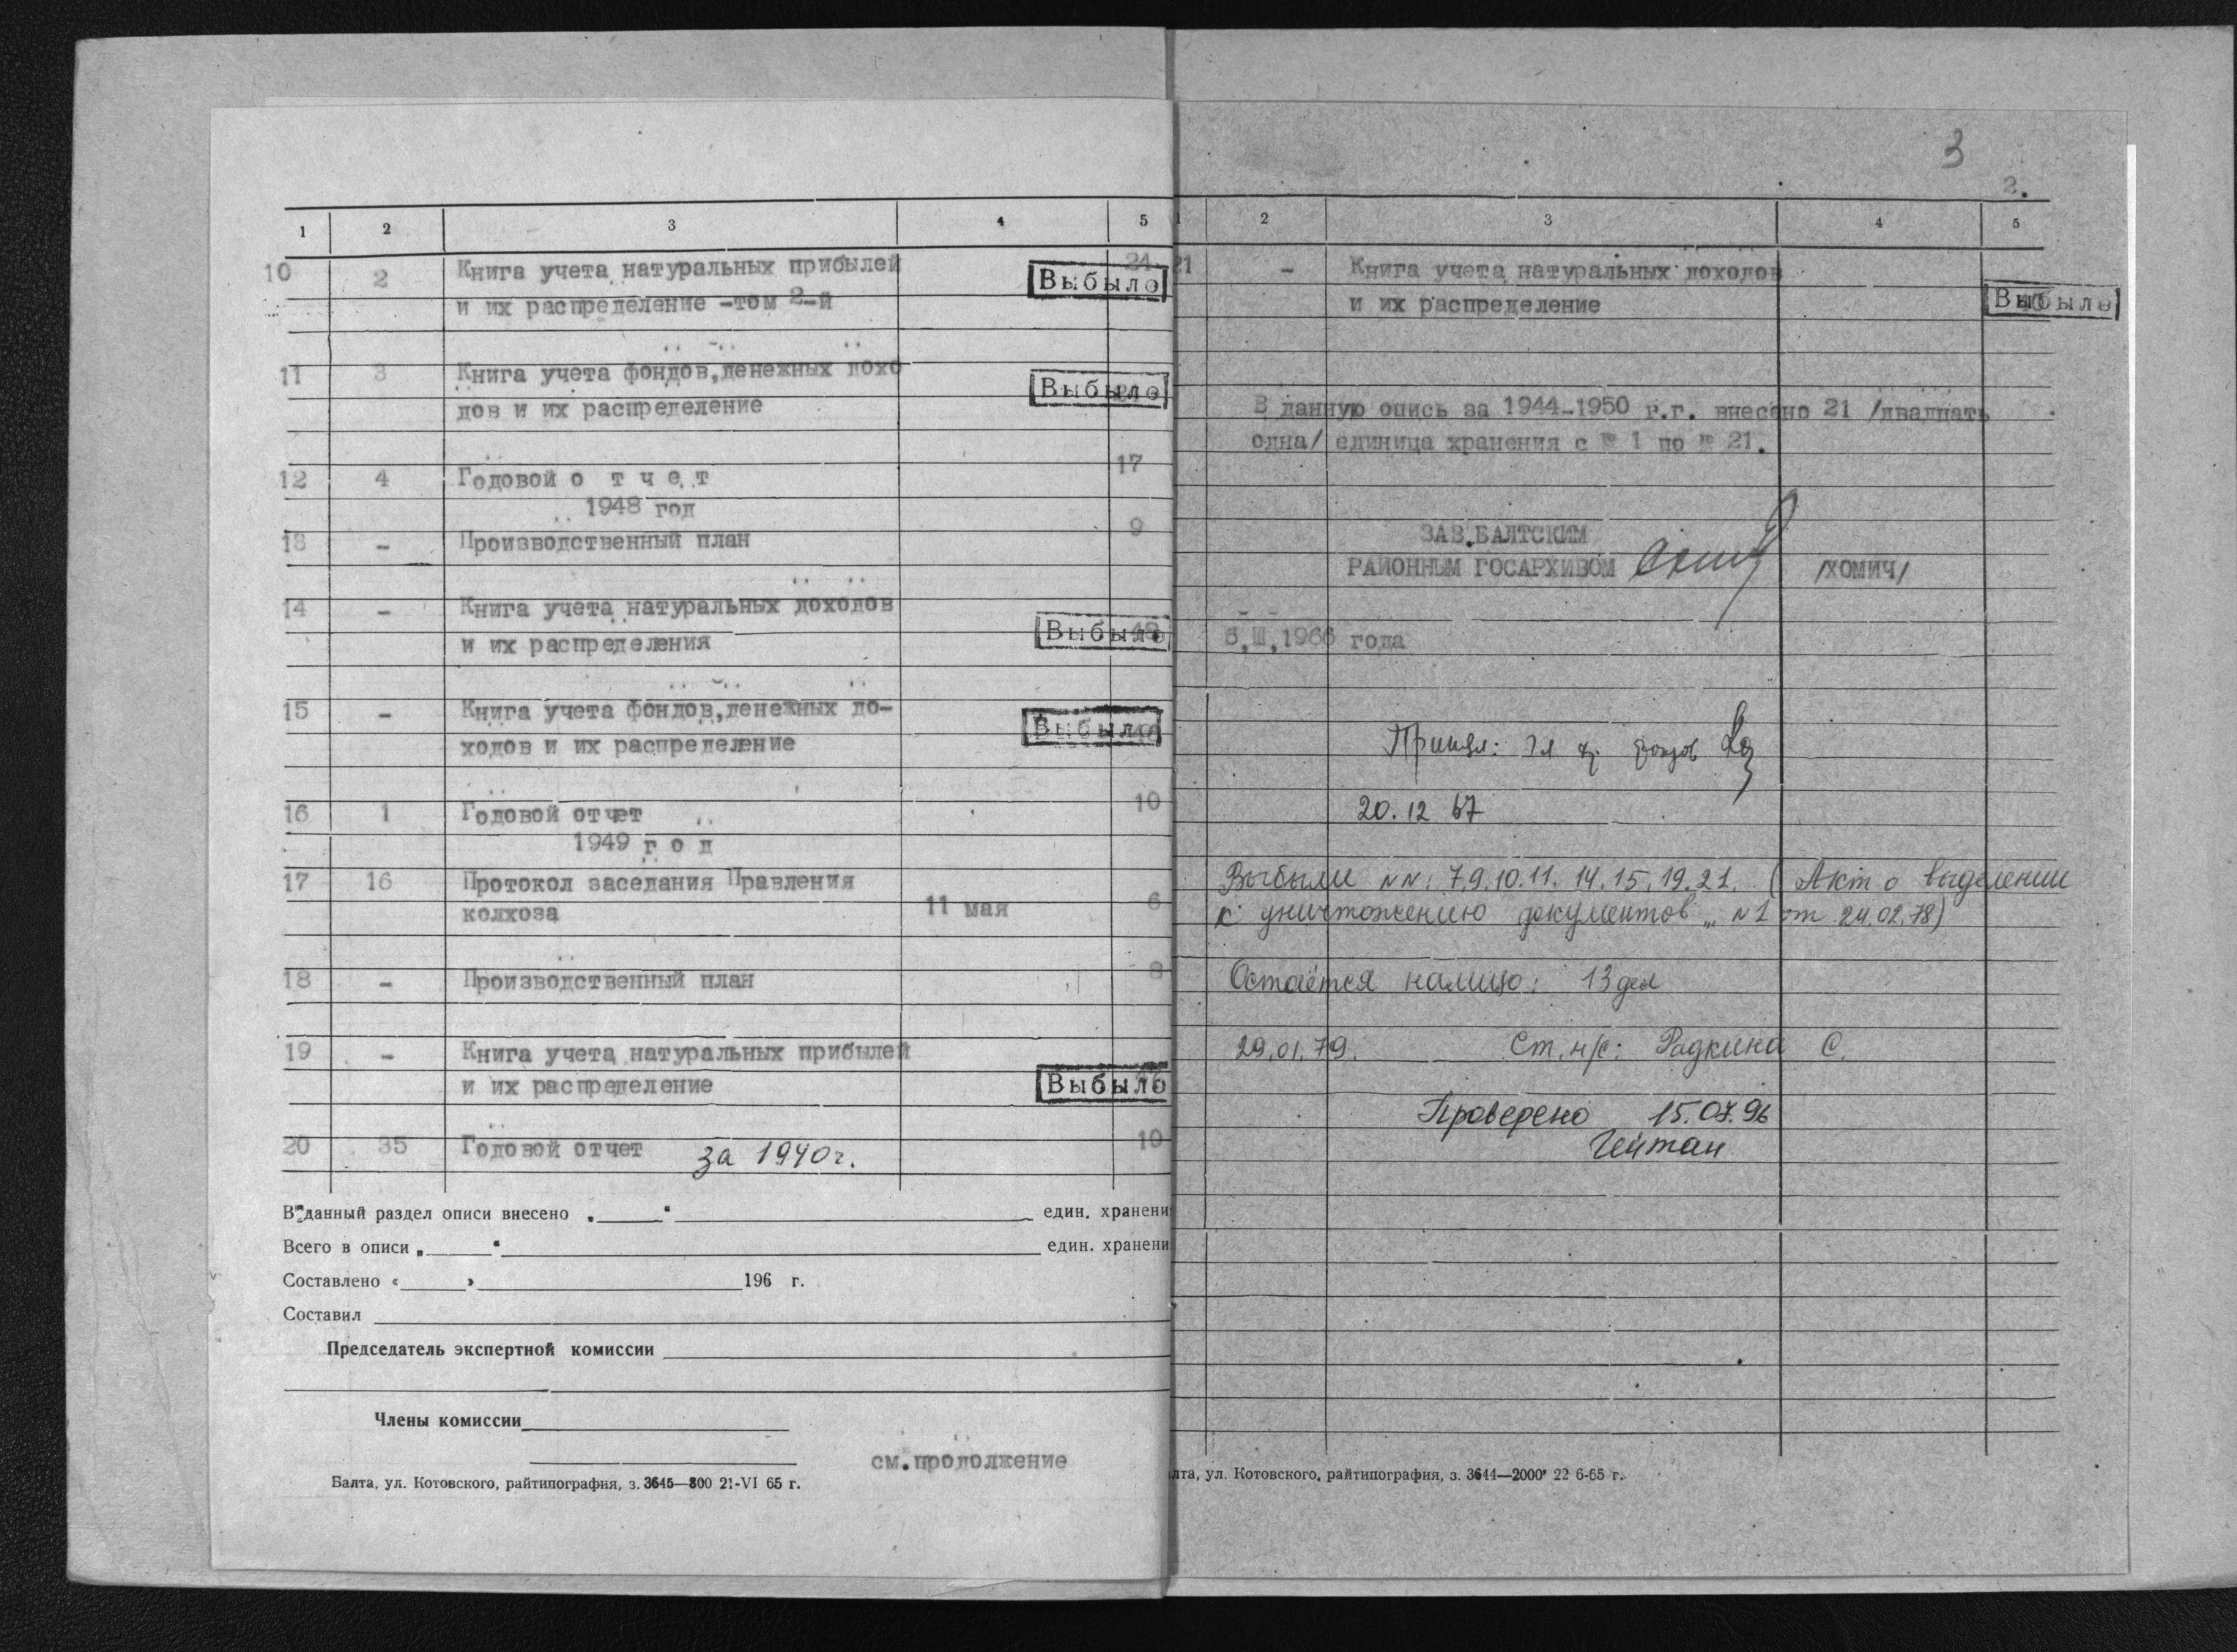 1 2 3 4 5
10 2 Книга учета натуральных прибылей 24
и их распределение -том 2-й
Выбыло
11 3 Книга учета фондов,денежных дохо
дов и их распределение
Выбыло
12 4 Годовой о т ч е т 17
1948 год
13 - Производственный план 9
14 - Книга учета натуральных доходов
и их распределения
Выбыло
15 - Книга учета фондов,денежных до-
ходов и их распределение
Выбыло
16 1 Годовой отчет 10
1949 г о д
17 16 Протокол заседания Правления
колхоза 11 мая 6
18 - Производственный план 8
19 - Книга учета натуральных прибылей
и их распределение
Выбыло
20 35 Годовой отчет за 1940г. 10
В данный раздел описи внесено „ “ един. хранени
Всего в описи „ “ един. хранени
Составлено « » 196 г.
Составил
Председатель экспертной комиссии
Члены комиссии
см.продолжение
Балта, ул. Котовского, райтипография, з. 3645—800 21-VI 65 г.
3
2.
1 2 3 4 5
21 - Книга учета натуральных доходов
и их распределение
Выбыло
В данную опись за 1944-1950 г.г. внесено 21 /двадцать
одна/ единица хранения с № 1 по № 21.
ЗАВ.БАЛТСКИМ
РАЙОННЫМ ГОСАРХИВОМ /ХОМИЧ/
8,III,1966 года
20.12 67
Выбыли NN: 7.9.10.11.14.15.19.21. (Акт о выделении
к уничтожению документов „ N1 от 24.02.78)
Остаётся налицо: 13 дел
29.01.79. Ст. н/с: Радкина С.
Проверено 15.07.96
Гейтан
лта, ул. Котовского, райтипография, з. 3644—2000 22 6-65 г.